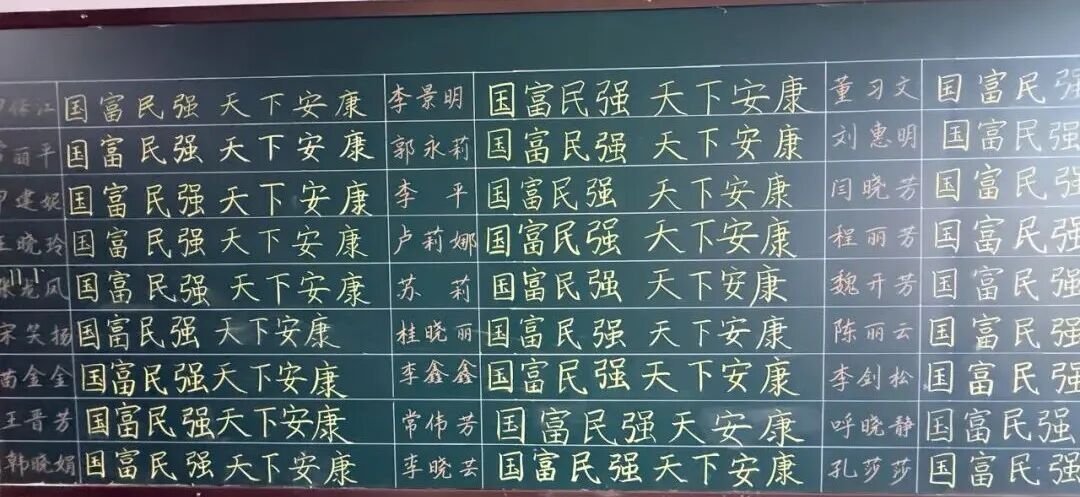 保江 国富民强 天下安康 李景明 国富民强 天下安康 董习文 国富民强
丽平 国富民强 天下安康 郭永莉 国富民强 天下安康 刘惠明 国富民强
建妮 国富民强 天下安康 李平 国富民强 天下安康 闫晓芳 国富民强
王晓玲 国富民强 天下安康 卢莉娜 国富民强 天下安康 程丽芳 国富民强
龙凤 国富民强 天下安康 苏莉 国富民强 天下安康 魏开芳 国富民强
宋笑扬 国富民强 天下安康 桂晓丽 国富民强 天下安康 陈丽云 国富民强
苗金金 国富民强 天下安康 李鑫鑫 国富民强 天下安康 李剑松 国富民强
王晋芳 国富民强 天下安康 常伟芳 国富民强 天安康 呼晓静 国富民强
韩晓娟 国富民强 天下安康 李晓芸 国富民强 天下安康 孔莎莎 国富民强